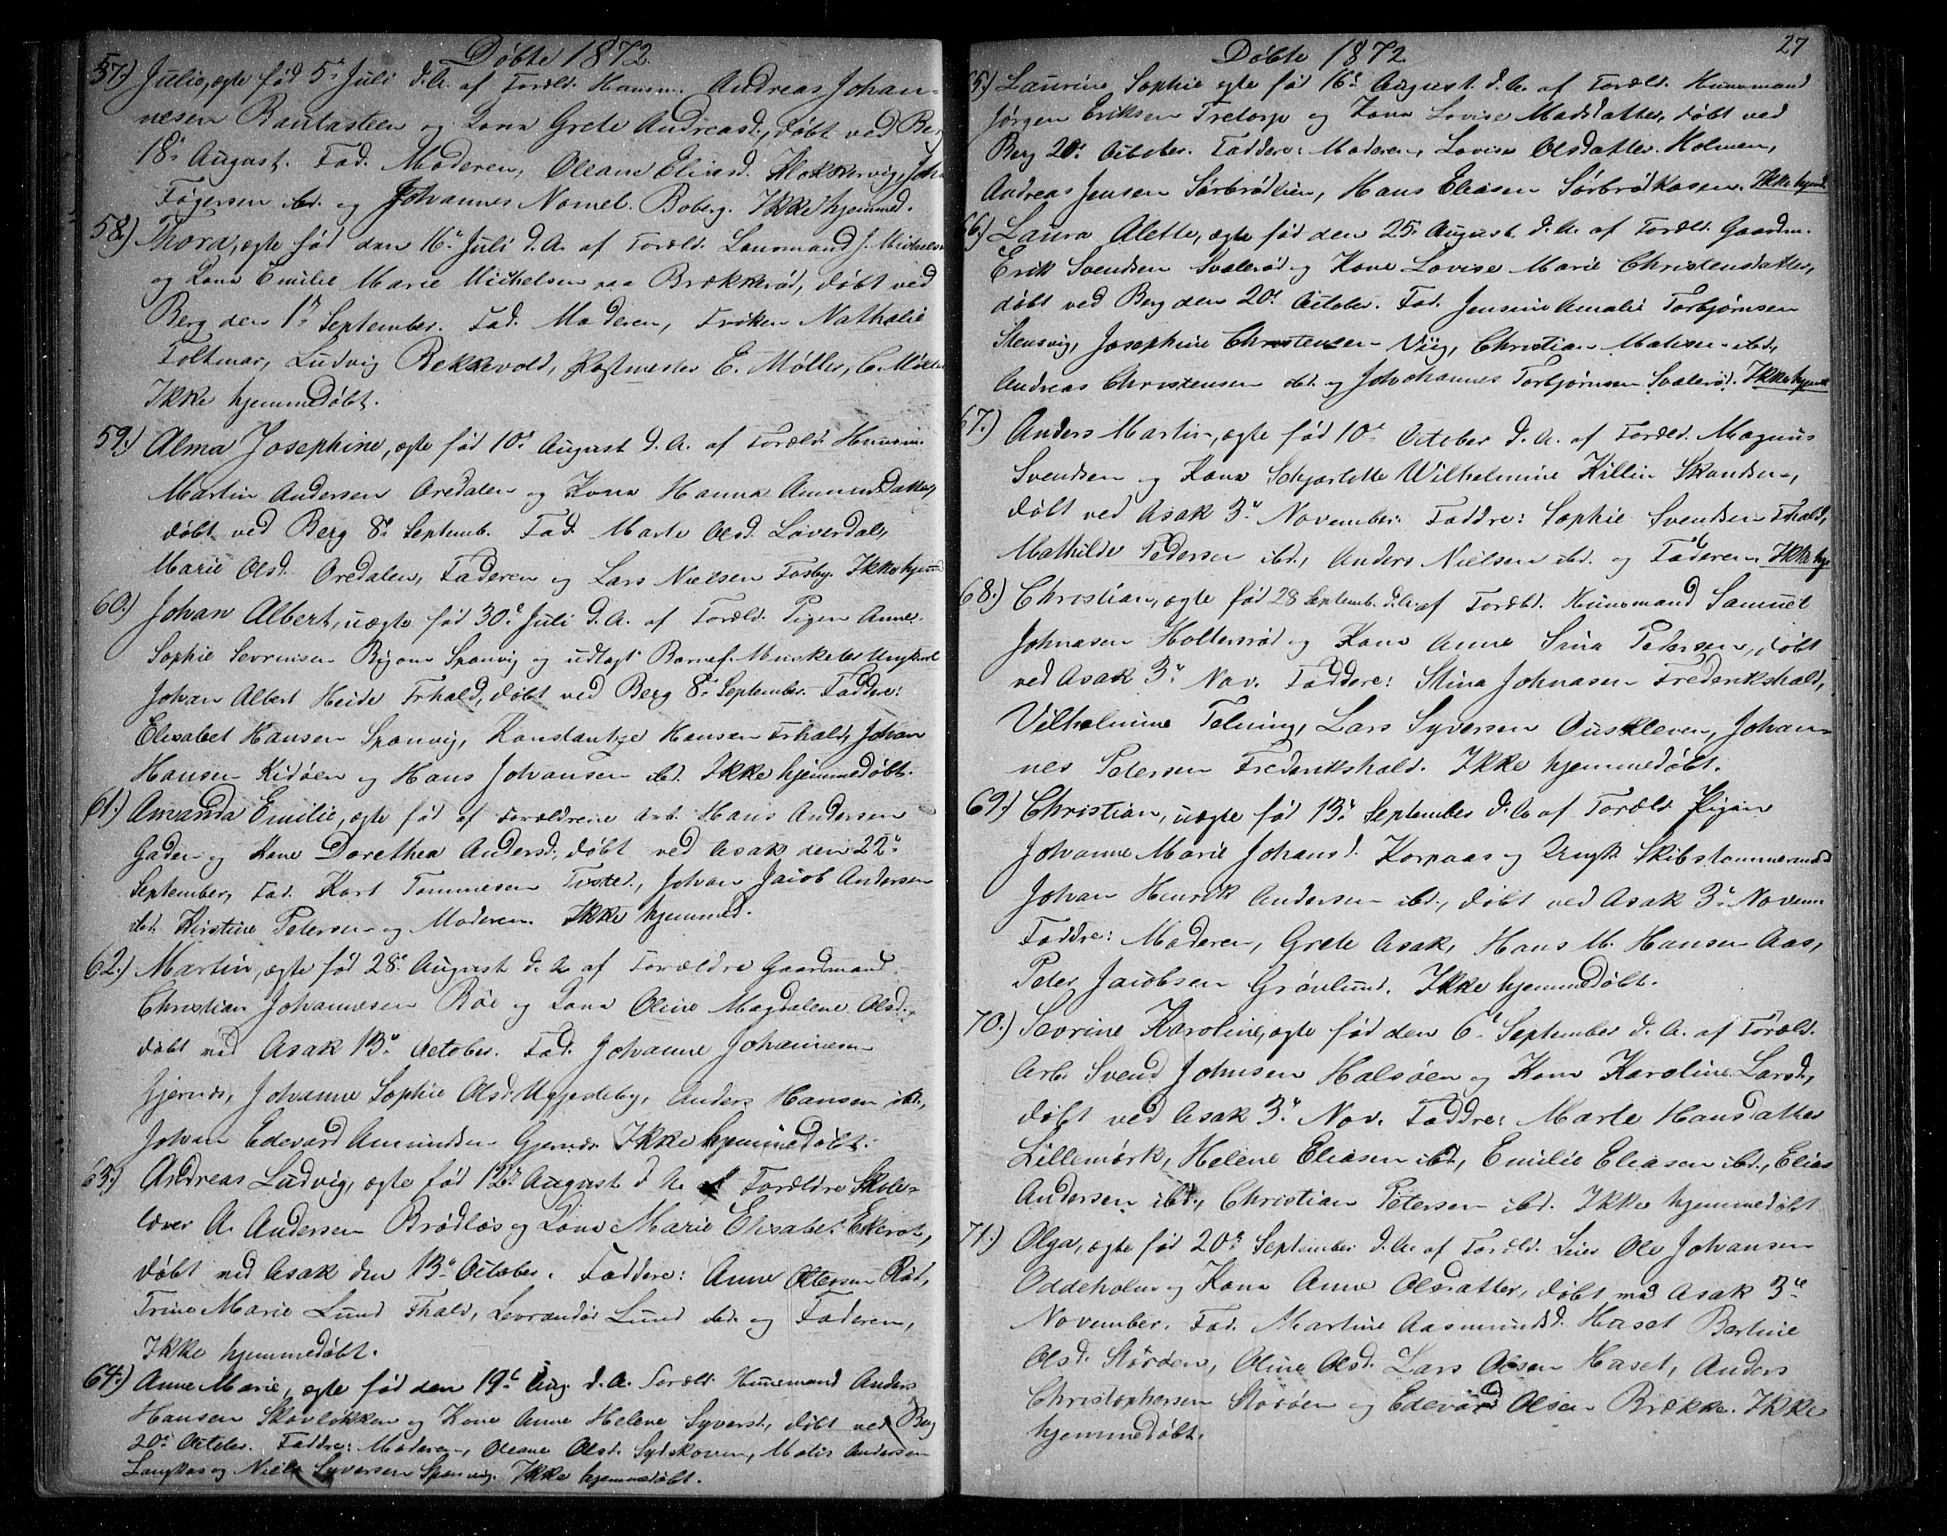 Døbte 1872.
57.) Julie, ægte født 5te Juli d. A. af Foræld. Husm. Andreas Johan-
nesen Bautasteen og Kone Grete Andreasd., døbt ved Berg
18de August. Fad. Moderen, Oleane Eliasd.
og Johannes Boberg. Ikke hjemmed.
58.) Thora, ægte født den 16de Juli d. A. af Foræld. Lensmand J. Michelsen
og Kone Emilie Marie Michelsen paa Brækkerød, døbt ved
Berg den 1ste September. Fad. Moderen, Frøken Nathalie
Foltmar, Ludvig Bekkevold, Postmester E. Møller, C. Møller
Ikke hjemmedøbt.
59.) Alma Josephine, ægte født 10de August d. A. af Foræld. Husm.
Martin Andersen Oredalen og Kone Hanna Amundsdatter,
døbt ved Berg 8de Septemb. Fad. Marte Olsd. Løverdal,
Marie Olsd. Oredalen, Faderen og Lars Nielsen Fosby. Ikke hjemd
60.) Johan Albert, uægte født 30te Juli d. A. af Foræld. Pigen Anne
Sophie Sevrinsen Sponvig og udlagt Barnef. Musketer Ungkarl
Johan Albert Heide Frhald, døbt ved Berg 8de September. Faddere:
Elisabet Hansen Sponvig, Konstantse Hansen Frhald, Johan
Hansen Kidøen og Hans Johansen ibd. Ikke hjemmedøbt.
61.) Amanda Emilie, ægte født af Forældrene Arb. Hans Andersen
Gaden og Kone Dorethea Andersd., døbt ved Asak den 22de
September, Fad. Karl Tommesen Tvsted, Johan Jacob Andersen
ibd. Kirstine Petersen og Moderen. Ikke hjemmed.
62.) Martin, ægte født 28de August d. A. af Forældre Gaardmand
Christian Johannesen Røe og Kone Oline Magdalene Olsd.,
døbt ved Asak 13de October. Fad. Johanne Johannesen
Gjernæs, Johanne Sophie Olsd. Uggedeby, Anders Hansen ibd.,
Johan Edevard Amundsen Gjernæs Ikke hjemmedøbt.
63.) Andreas Ludvig, ægte født 12te August d. A. af Forældre Skole-
lærer A. Andersen Brødløs og Kone Marie Elisabet Ekerot,
døbt ved Asak den 13de October. Faddere: Anne Ottersen Rød,
Trine Marie Lund Fhald, Levrandør Lund ibd. og Faderen,
Ikke hjemmedøbt.
64.) Anne Marie, ægte født den 19de Aug. d. A. Foræld. Huusmand Anders
Hansen Skovløkken og Kone Anne Helene Syversd., døbt ved Berg
20de October. Faddre: Moderen, Oleane Olsd. Sydskoven, Matis Andersen
Langkas og Niels Syversen Sponvig. Ikke hjemmedøbt.
27
Døbte 1872
65.) Laurine Sophie ægte født 16de August d. A. af Foræld. Huusmand
Jørgen Eriksen Tretorp og Kone Lovise Madsdatter, døbt ved
Berg 20de October. Faddere: Moderen, Lovise Olsdatter Holmen,
Andreas Jensen Sørbrødlien, Hans Eliasen Sørbrødkasen. Ikke hjemd.
66.) Laura Alette, ægte født den 25de August d. A. af Foræld. Gaardm.
Erik Svendsen Svalerød og Kone Lovise Marie Christensdatter,
døbt ved Berg den 20de October. Fad. Jensine Amalie Torbjørnsen
Stensvig, Josephine Christensen Viig, Christian Matisen ibd,
Andreas Christensen ibd. og Johohannes Torbjørnsen Svalerød. Ikke hjemd
67.) Anders Martin, ægte født 10de October d. A. af Foræld. Magnus
Svendsen og Kone Schjarlotte Wilhelmine Killin Skandsen,
døbt ved Asak 3de November. Faddre: Sophie Svendsen Fhald,
Mathilde Pedersen ibd., Anders Nielsen ibd. og Faderen. Ikke hje
68.) Christian, ægte født 28 Septemb. d. A. af Foræld. Huusmand Samuel
Johnasen Holtersrød og Kone Anne Sina Pedersen, døbt
ved Asak 3de Nov. Faddere: Stina Johnasen Frederikshald,
Vilhelmine Tolning, Lars Syversen Ouskleven, Johan-
nes Petersen Frederikshald. Ikke hjemmedøbt.
69.) Christian, uægte født 13de September d. A. af Foræld. Pigen
Johanne Marie Johansd. Korpaas og Ungk. Skibstømmermd
Johan Henrik Andersen ibd., døbt ved Asak 3de Novem
Faddre: Moderen, Grete Asak, Hans M. Hansen Aas,
Peter Jacobsen Grønlund. Ikke hjemmedøbt.
70.) Sevrine Karoline, ægte født den 6te September d. A. af Foræld.
Arb. Svend Johnsen Halsøen og Kone Karoline Larsd.,
døbt ved Asak 3de Nov. Faddre: Marte Hansdatter
Lillemørk, Helene Eliasen ibd., Emilie Eliasen ibd., Elias
Andersen ibd., Christian Petersen ibd. Ikke hjemmedøbt
71.) Olga, ægte født 20de September d. A. af Foræld. Leier Ole Johansen
Oddeholm og Kone Anne Olsdatter, døbt ved Asak 3de
November. Fad. Martine Aasmundsd. Haset Bertine
Olsd. Storøen, Oline Olsd. Lars Olsen Haset, Anders
Christophersen Storøen og Edevard Olsen Brække. Ikke
hjemmedøbt.